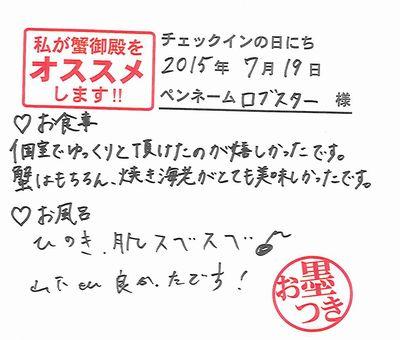 私が蟹御殿を
オススメ
します!!
チェックインの日にち
2015年 7月19日
ペンネーム ロブスター 様
♡お食事
個室でゆっくりと頂けたのが嬉しかったです。
蟹はもちろん、焼き海老がとても美味しかったです。
♡お風呂
ひのき、肌スベスベ♪
良かったです!
お墨つき